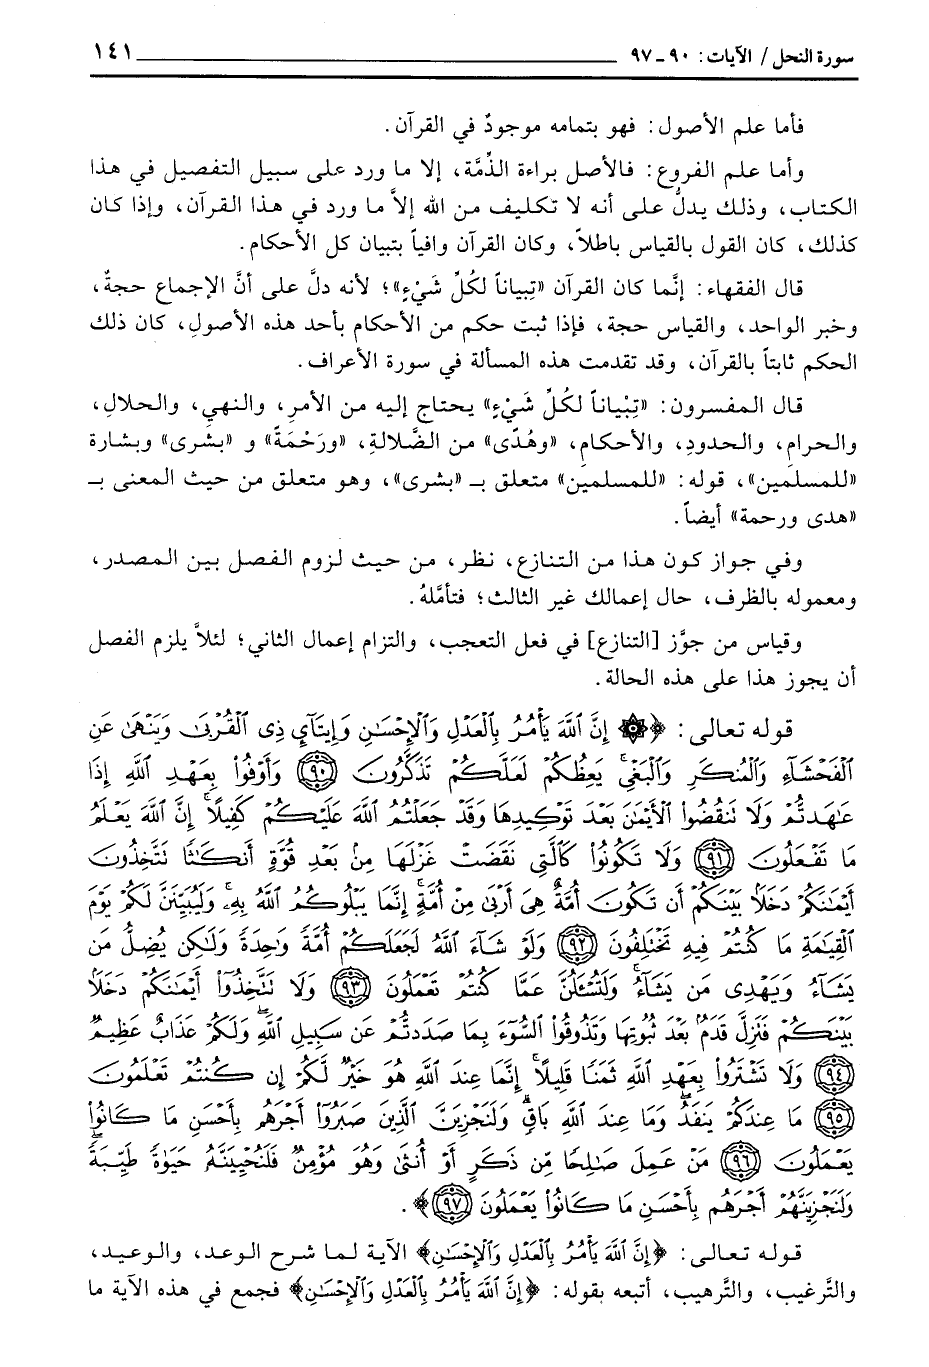 سورة النحل / الآيات: ٩٠ ـ ٩٧ ١٤١
فأما علم الأصول: فهو بتمامه موجودٌ في القرآن.
وأما علم الفروع: فالأصل براءة الذِّمَّة، إلا ما ورد على سبيل التفصيل في هذا
الكتاب، وذلك يدلُّ على أنه لا تكليف من الله إلاَّ ما ورد في هذا القرآن، وإذا كان
كذلك، كان القول بالقياس باطلاً، وكان القرآن وافياً بتبيان كل الأحكام.
قال الفقهاء: إنَّما كان القرآن «تِبياناً لكُلِّ شَيْءٍ»؛ لأنه دلَّ على أنَّ الإجماع حجةٌ،
وخبر الواحد، والقياس حجة، فإذا ثبت حكم من الأحكام بأحد هذه الأصولِ، كان ذلك
الحكم ثابتاً بالقرآن، وقد تقدمت هذه المسألة في سورة الأعراف.
قال المفسرون: «تِبْياناً لكُلِّ شَيْءٍ» يحتاج إليه من الأمرِ، والنهي، والحلال،
والحرام، والحدودِ، والأحكام، «وهُدًى» من الضَّلالةِ، «ورَحْمَةً» و «بشرى» وبشارة
«للمسلمين»، قوله: «للمسلمين» متعلق بـ «بشرى»، وهو متعلق من حيث المعنى بـ
«هدى ورحمة» أيضاً.
وفي جواز كون هذا من التنازع، نظر، من حيث لزوم الفصل بين المصدر،
ومعموله بالظرف، حال إعمالك غير الثالث؛ فتأمَّلهُ.
وقياس من جوَّز [التنازع] في فعل التعجب، والتزام إعمال الثاني؛ لئلاَّ يلزم الفصل
أن يجوز هذا على هذه الحالة.
قوله تعالى: ﴿۞ إِنَّ ٱللَّهَ يَأْمُرُ بِٱلْعَدْلِ وَٱلْإِحْسَـٰنِ وَإِيتَآيِٕ ذِى ٱلْقُرْبَىٰ وَيَنْهَىٰ عَنِ
ٱلْفَحْشَآءِ وَٱلْمُنكَرِ وَٱلْبَغْىِۚ يَعِظُكُمْ لَعَلَّكُمْ تَذَكَّرُونَ (٩٠) وَأَوْفُوا۟ بِعَهْدِ ٱللَّهِ إِذَا
عَـٰهَدتُّمْ وَلَا تَنقُضُوا۟ ٱلْأَيْمَـٰنَ بَعْدَ تَوْكِيدِهَا وَقَدْ جَعَلْتُمُ ٱللَّهَ عَلَيْكُمْ كَفِيلًاۚ إِنَّ ٱللَّهَ يَعْلَمُ
مَا تَفْعَلُونَ (٩١) وَلَا تَكُونُوا۟ كَٱلَّتِى نَقَضَتْ غَزْلَهَا مِنۢ بَعْدِ قُوَّةٍ أَنكَـٰثًا تَتَّخِذُونَ
أَيْمَـٰنَكُمْ دَخَلًۢا بَيْنَكُمْ أَن تَكُونَ أُمَّةٌ هِىَ أَرْبَىٰ مِنْ أُمَّةٍۚ إِنَّمَا يَبْلُوكُمُ ٱللَّهُ بِهِۦۚ وَلَيُبَيِّنَنَّ لَكُمْ يَوْمَ
ٱلْقِيَـٰمَةِ مَا كُنتُمْ فِيهِ تَخْتَلِفُونَ (٩٢) وَلَوْ شَآءَ ٱللَّهُ لَجَعَلَكُمْ أُمَّةً وَٰحِدَةً وَلَـٰكِن يُضِلُّ مَن
يَشَآءُ وَيَهْدِى مَن يَشَآءُۚ وَلَتُسْـَٔلُنَّ عَمَّا كُنتُمْ تَعْمَلُونَ (٩٣) وَلَا تَتَّخِذُوٓا۟ أَيْمَـٰنَكُمْ دَخَلًۢا
بَيْنَكُمْ فَتَزِلَّ قَدَمٌۢ بَعْدَ ثُبُوتِهَا وَتَذُوقُوا۟ ٱلسُّوٓءَ بِمَا صَدَدتُّمْ عَن سَبِيلِ ٱللَّهِۖ وَلَكُمْ عَذَابٌ عَظِيمٌ
(٩٤) وَلَا تَشْتَرُوا۟ بِعَهْدِ ٱللَّهِ ثَمَنًا قَلِيلًاۚ إِنَّمَا عِندَ ٱللَّهِ هُوَ خَيْرٌ لَّكُمْ إِن كُنتُمْ تَعْلَمُونَ
(٩٥) مَا عِندَكُمْ يَنفَدُۖ وَمَا عِندَ ٱللَّهِ بَاقٍۗ وَلَنَجْزِيَنَّ ٱلَّذِينَ صَبَرُوٓا۟ أَجْرَهُم بِأَحْسَنِ مَا كَانُوا۟
يَعْمَلُونَ (٩٦) مَنْ عَمِلَ صَـٰلِحًا مِّن ذَكَرٍ أَوْ أُنثَىٰ وَهُوَ مُؤْمِنٌ فَلَنُحْيِيَنَّهُۥ حَيَوٰةً طَيِّبَةًۖ
وَلَنَجْزِيَنَّهُمْ أَجْرَهُم بِأَحْسَنِ مَا كَانُوا۟ يَعْمَلُونَ (٩٧)﴾.
قوله تعالى: ﴿إِنَّ ٱللَّهَ يَأْمُرُ بِٱلْعَدْلِ وَٱلْإِحْسَـٰنِ﴾ الآية لما شرح الوعد، والوعيد،
والتَّرغيب، والتَّرهيب، أتبعه بقوله: ﴿إِنَّ ٱللَّهَ يَأْمُرُ بِٱلْعَدْلِ وَٱلْإِحْسَـٰنِ﴾ فجمع في هذه الآية ما